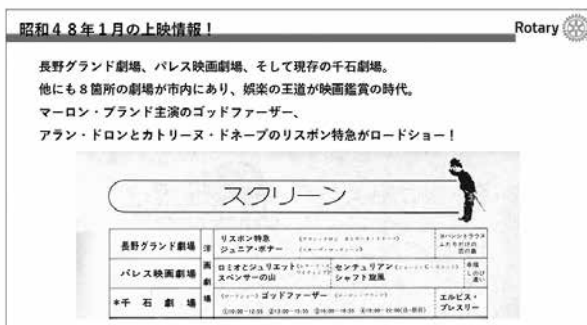 昭和４８年１月の上映情報！
Rotary
長野グランド劇場、パレス映画劇場、そして現存の千石劇場。
他にも８箇所の劇場が市内にあり、娯楽の王道が映画鑑賞の時代。
マーロン・ブランド主演のゴッドファーザー、
アラン・ドロンとカトリーヌ・ドネーブのリスボン特急がロードショー！
スクリーン
洋画劇場
長野グランド劇場
リスボン特急
ジュニア・ボナー
パレス映画劇場
ロミオとジュリエット
スペンサーの山
センチュリアン
シャフト旋風
＊千石劇場
ゴッドファーザー
エルビス・
プレスリー